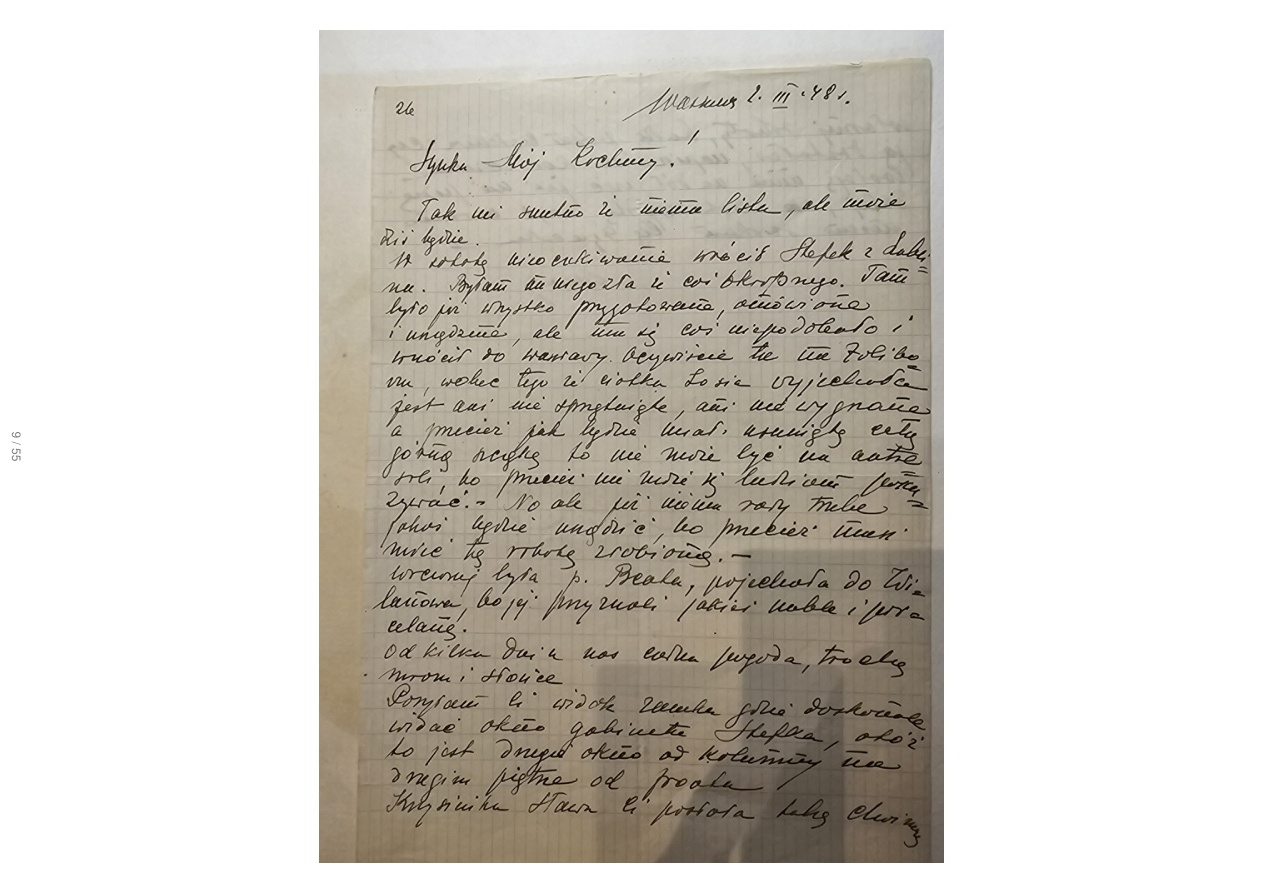 26
Warszawa 2. III. 48 r.
Synku Mój Kochany!
Tak mi smutno że niema listu, ale może
dziś będzie.
W sobotę nieoczekiwanie wrócił Stefek z Lubli=
na. Byłam na niego zła że coś okropnego. Tam
było już wszystko przygotowane, omówione
i urządzone, ale mu się coś niepodobało i
wrócił do Warszawy. Oczywiście tu na Żolibo
rzu, wobec tego że ciotka Zosia wyjechała
jest ani nie sprzątnięte, ani nie wygrzane
a przecież jak będzie miał usuniętą całą
górną szczękę to nie może być na
bo przecież nie może się ludziom poka=
zywać. - No ale już niema rady trzeba
jakoś będzie urządzić, bo przecież musi
mieć tę robotę zrobioną. -
Wczoraj była p. Beata, pojechała do Wi=
lanowa, bo jej przyznali jakieś meble i por=
celanę.
Od kilku dni u nas ładna pogoda, trochę
mrozu i słońce
Posyłam Ci widok zamku gdzie doskonale
widać okno gabinetu Stefka, otóż
to jest drugie okno od kolumny na
drugim piętrze od frontu
Krysieńka Ci posłała taką
9 / 55